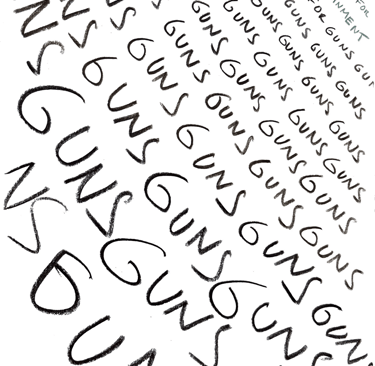 FOR
INMENT
FOR GUNS GU
GUNS GUNS GUNS
GUNS GUNS GUNS GUNS
GUNS GUNS GUNS GUNS
GUNS GUNS GUNS GUNS
GUNS GUNS GUNS GUNS
NS GUNS GUNS GUNS GUN
NS GUNS GUNS GUN
NS GUNS GUNS
NS GUN